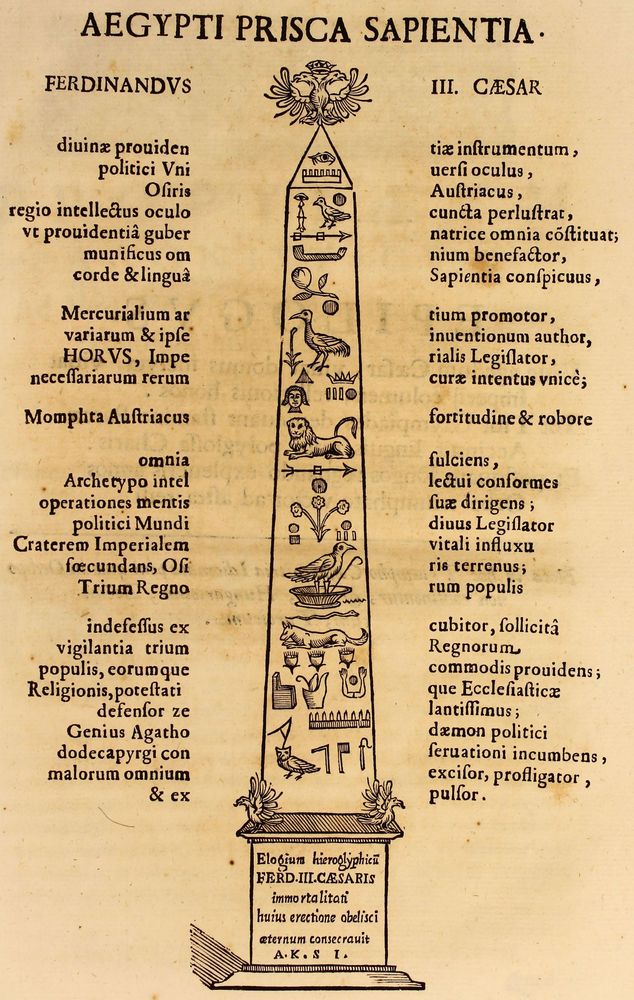 AEGYPTI PRISCA SAPIENTIA.
FERDINANDVS III. CÆSAR
diuinæ prouiden tiæ inſtrumentum,
politici Vni uerſi oculus,
Oſiris Auſtriacus,
regio intellectus oculo cuncta perluſtrat,
vt prouidentiâ guber natrice omnia cõſtituat;
munificus om nium benefactor,
corde & linguâ Sapientia conſpicuus,
Mercurialium ar tium promotor,
variarum & ipſe inuentionum author,
HORVS, Impe rialis Legiſlator,
neceſſariarum rerum curæ intentus vnicè;
Momphta Auſtriacus fortitudine & robore
omnia fulciens,
Archetypo intel lectui conformes
operationes mentis ſuæ dirigens;
politici Mundi diuus Legiſlator
Craterem Imperialem vitali influxu
fœcundans, Oſi ris terrenus;
Trium Regno rum populis
indefeſſus ex cubitor, ſollicitâ
vigilantia trium Regnorum
populis, eorumque commodis prouidens;
Religionis, poteſtati que Eccleſiaſticæ
defenſor ze lantiſſimus;
Genius Agatho dæmon politici
dodecapyrgi con ſeruationi incumbens,
malorum omnium exciſor, profligator,
& ex pulſor.
Elogium hieroglyphicũ
FERD. III. CÆSARIS
immortalitati
huius erectione obelisci
æternum consecrauit
A. K. S I.